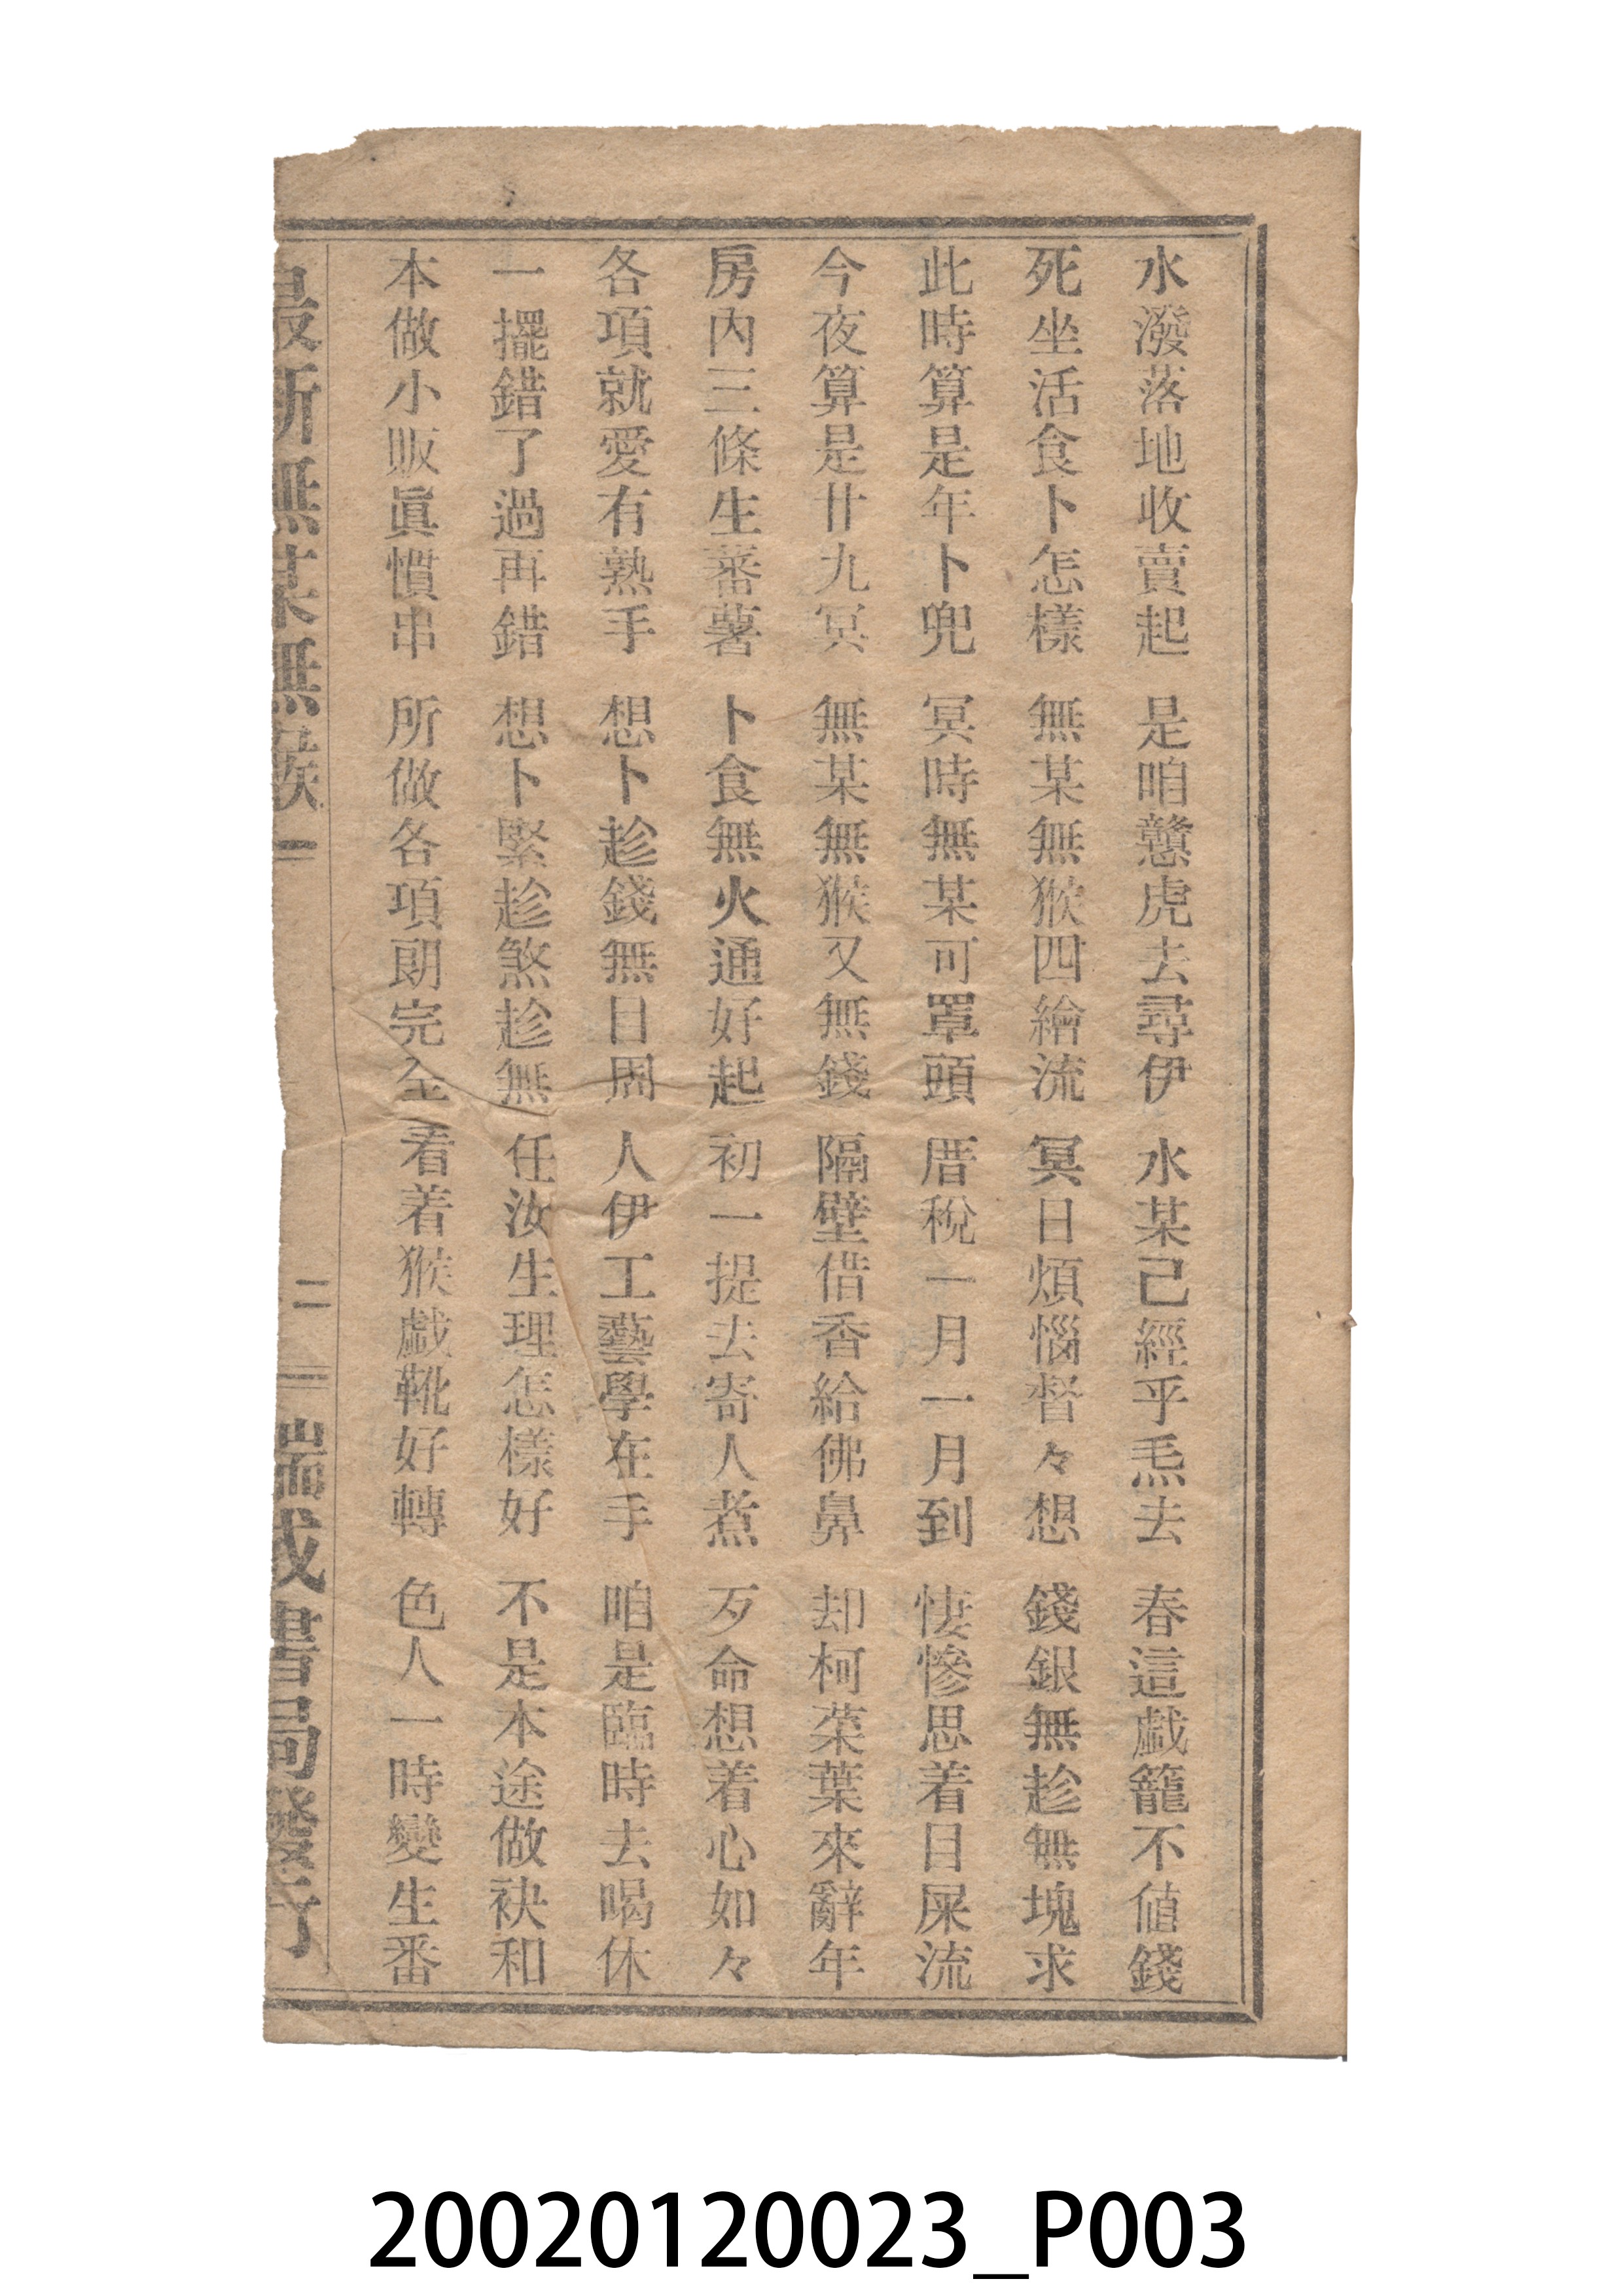 水潑落地收賣起　是咱戇虎去尋伊　水某己經乎𤆬去　春這戱籠不値錢
死坐活食卜怎樣　無某無猴四繪流　冥日煩惱督々想　錢銀無趁無塊求
此時算是年卜兜　冥時無某可罩頭　厝稅一月一月到　悽慘思着目屎流
今夜算是廿九冥　無某無猴又無錢　隔壁借香給佛鼻　却柯菜葉來辭年
房內三條生蕃薯　卜食無火通好起　初一提去寄人煮　歹命想着心如々
各項就愛有熟手　想卜趁錢無日周　人伊工藝學在手　咱是臨時去喝休
一擺錯了過再錯　想卜緊趁煞趁無　任汝生理怎樣好　不是本途做袂和
本做小販眞慣串　所做各項朗完全　看着猴戱靴好轉　色人一時變生番
最新無某無猴　二　瑞成書局發行
20020120023_P003